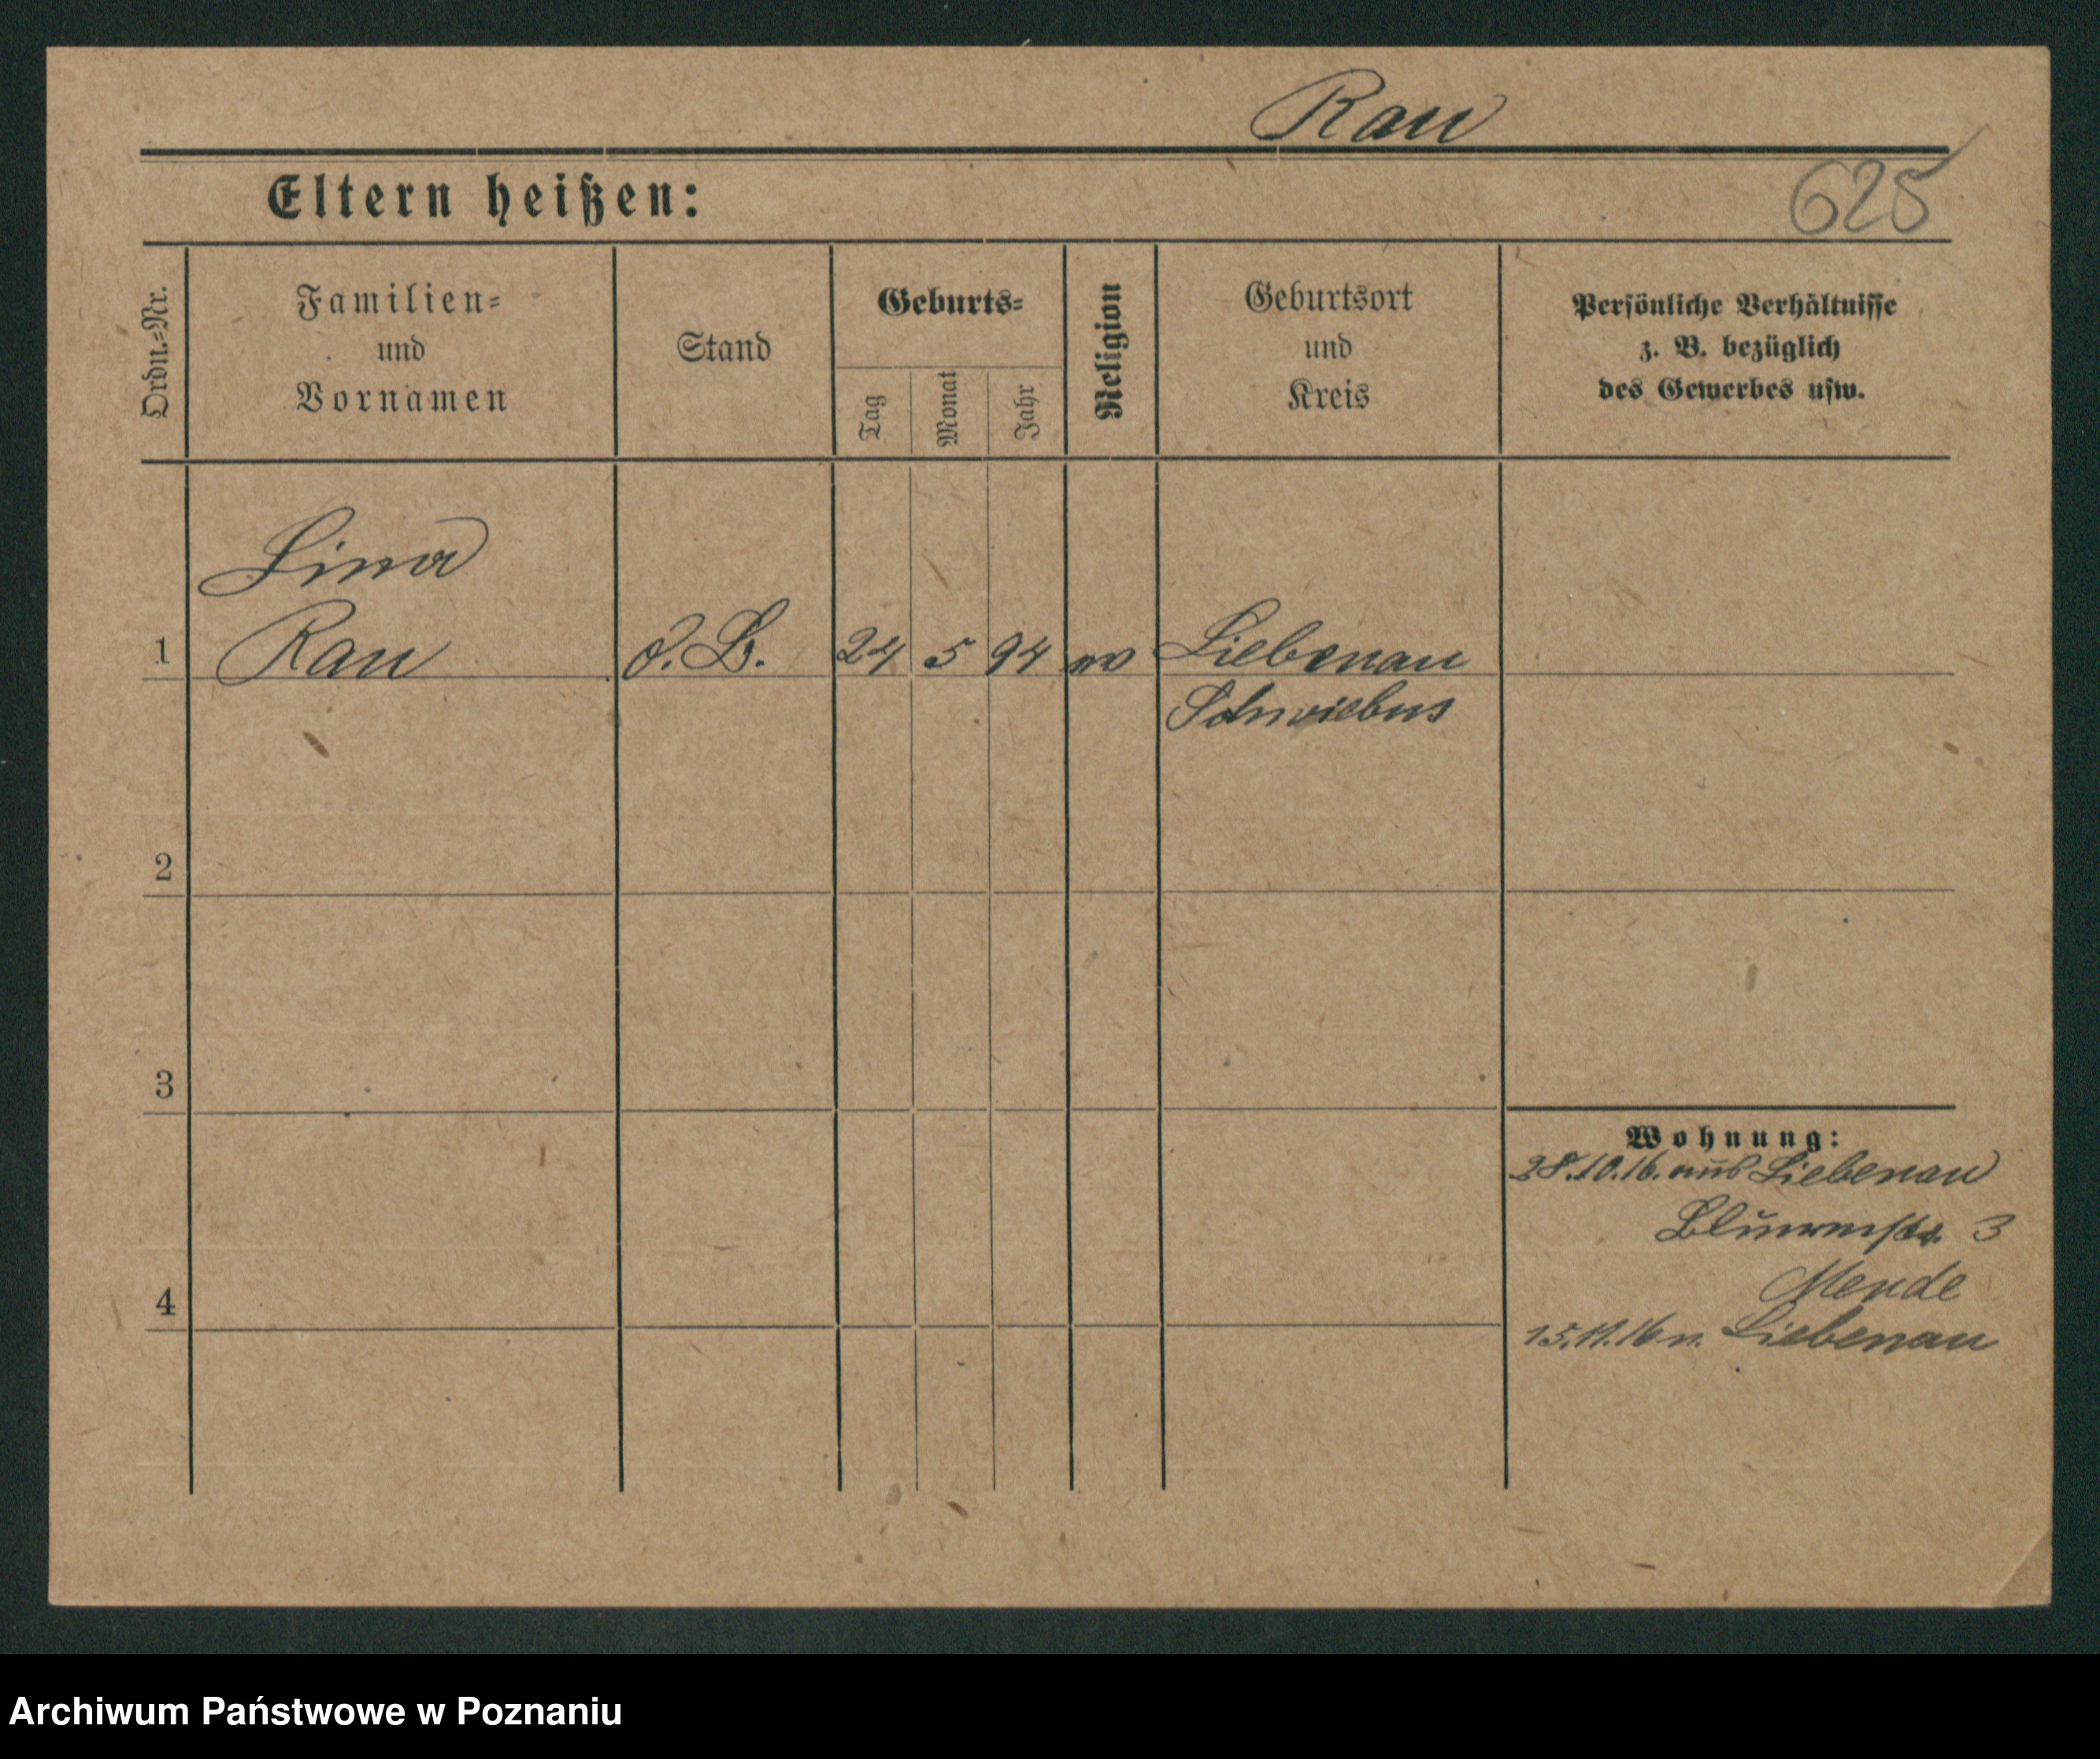 Rau
Eltern heißen:
625
Ordn.-Nr.
Familien-
und
Vornamen
Stand
Geburts-
Tag
Monat
Jahr
Religion
Geburtsort
und
Kreis
Persönliche Verhältnisse
z. B. bezüglich
des Gewerbes usw.
Lina
1 Rau o. B. 24 5 94 Liebenau
Schwiebus
2
3
4
Wohnung:
28.10.16. aus Liebenau
Blumenstr. 3
Mende
15.11.16 n. Liebenau
Archiwum Państwowe w Poznaniu